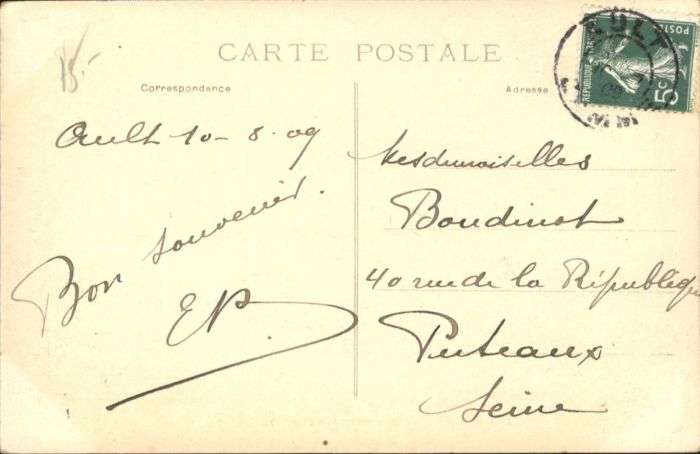 15.-
CARTE POSTALE
Correspondance
Adresse
AULT
POSTES
5c
Ault 10-8.09
Bon souvenir.
EP
Mesdemoiselles
Boudinot
40 rue de la République
Puteaux
Seine